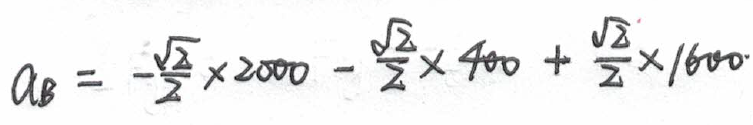 a_B = -√2/2 × 2000 - √2/2 × 400 + √2/2 × 1600.